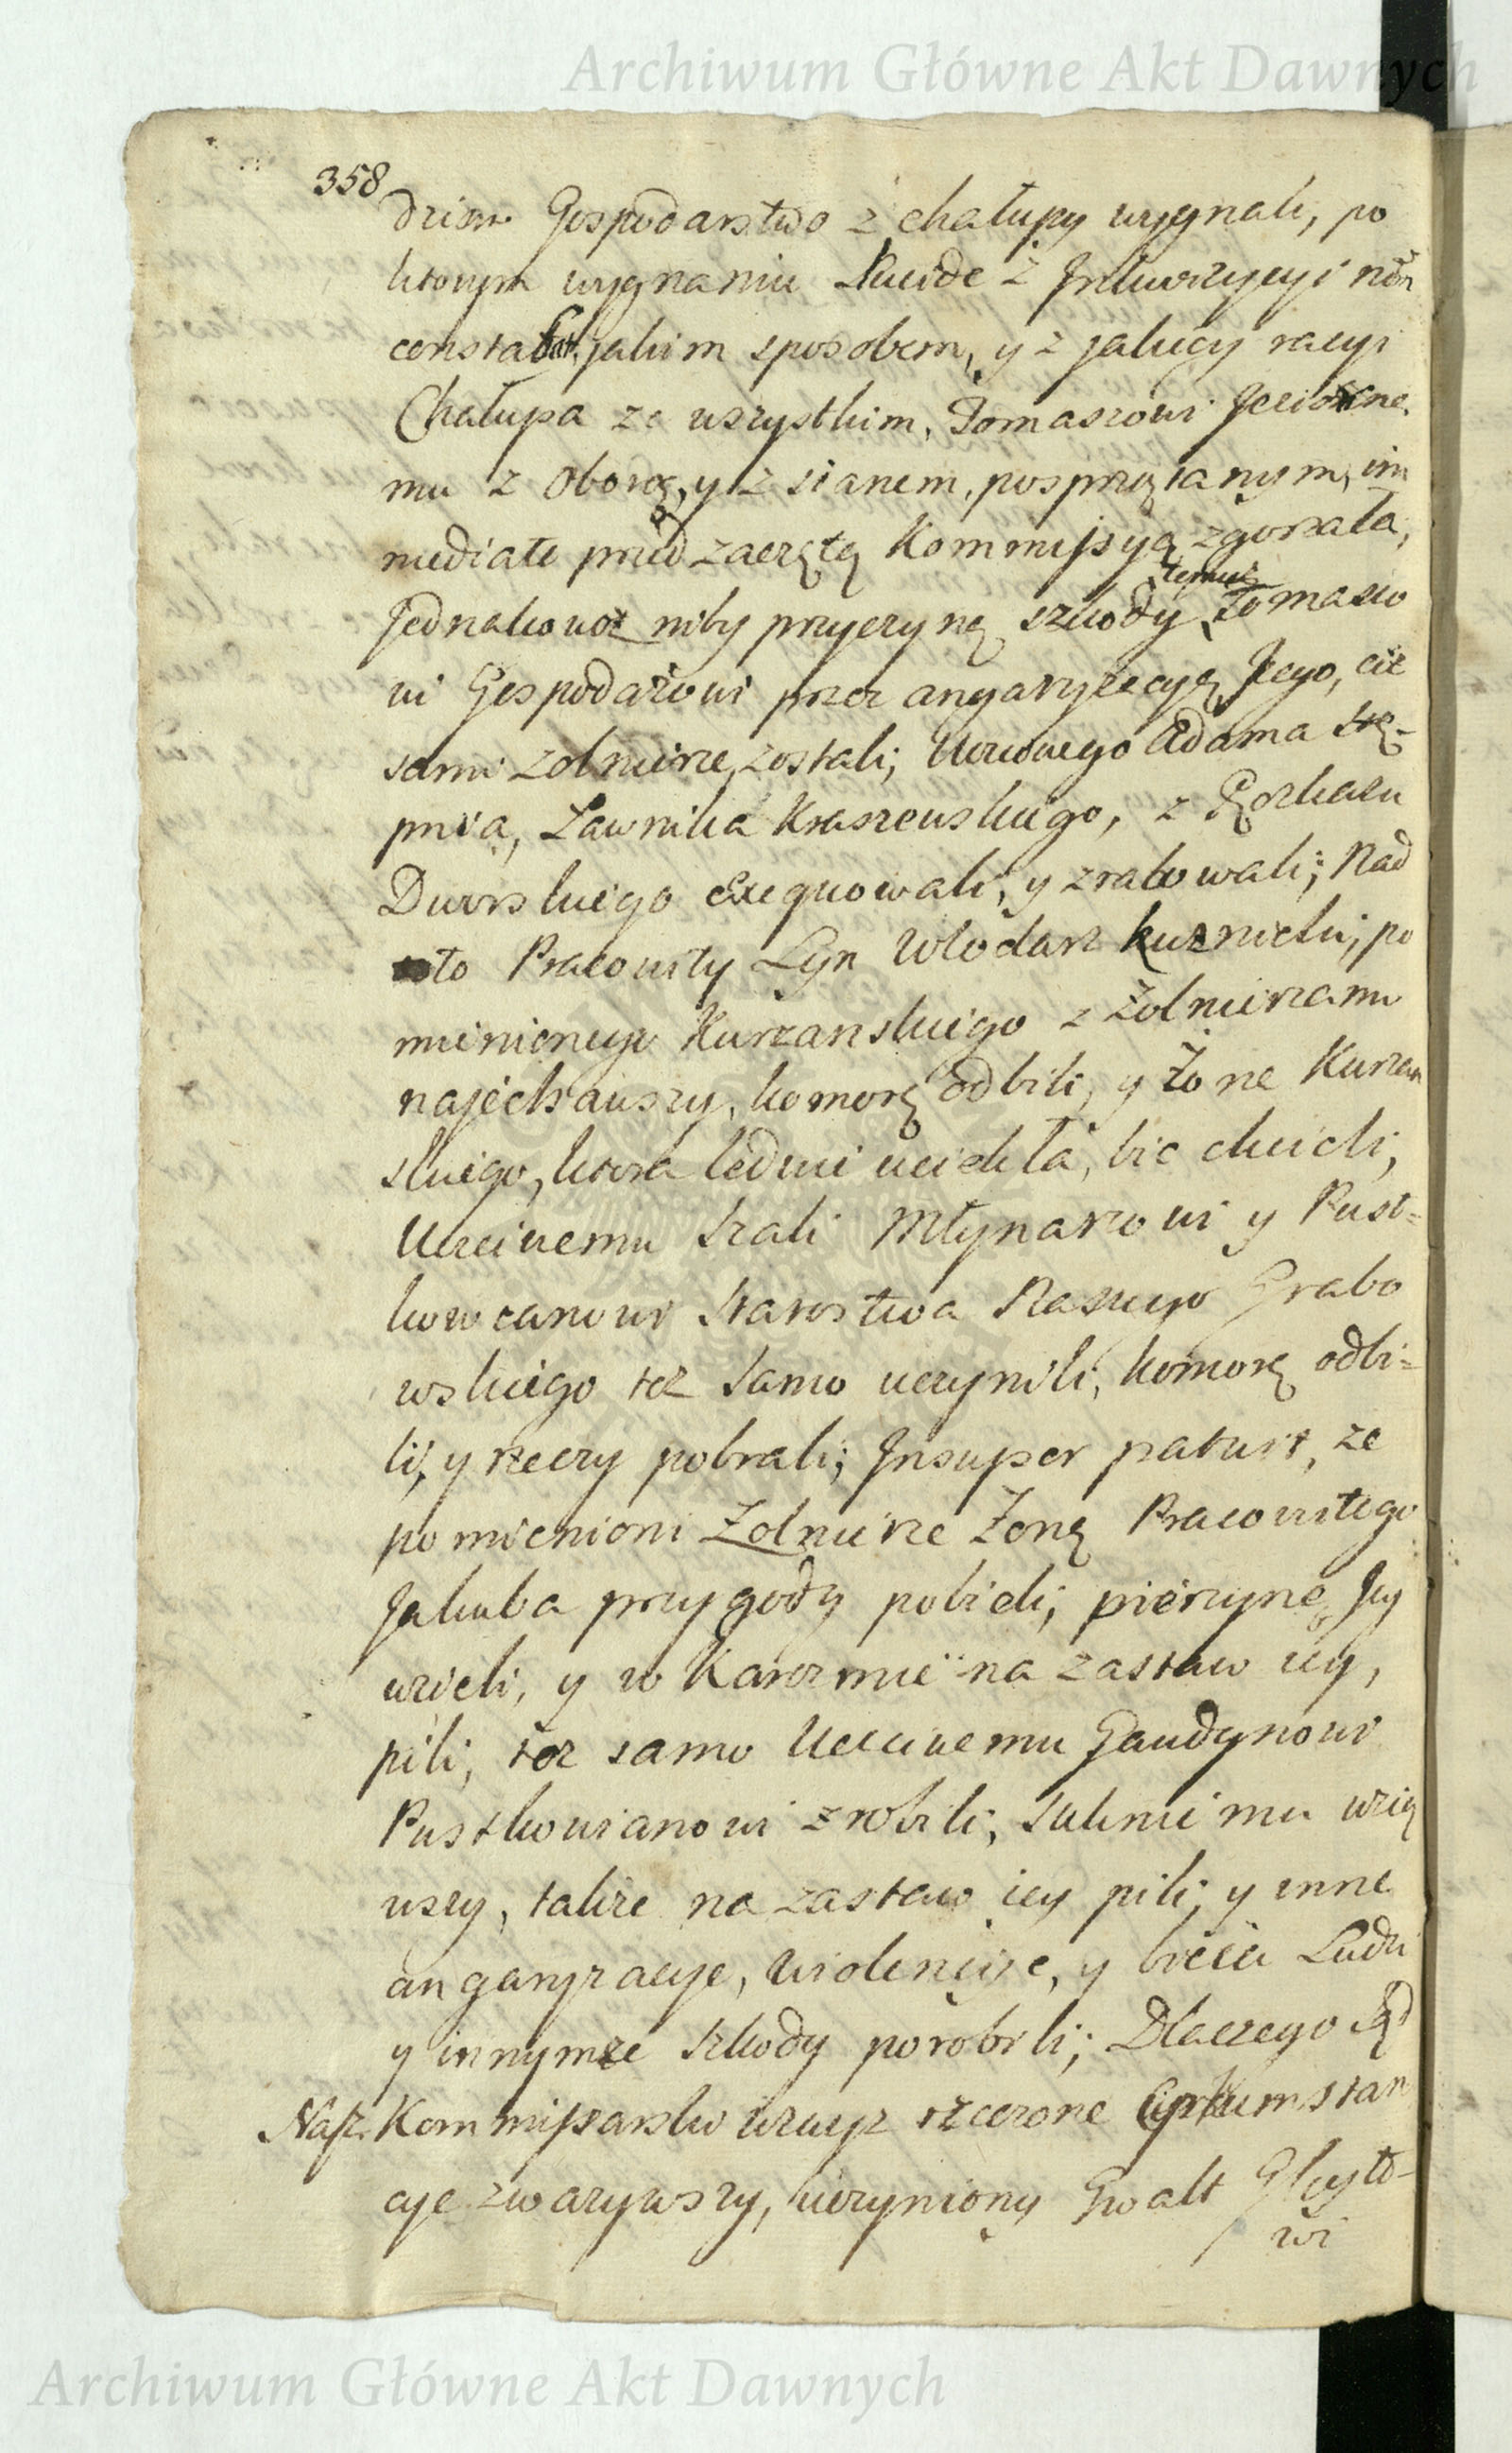 Archiwum Główne Akt Dawnych
358
dziow Gospodarstwo z chałupy wygnali, po
ktorym wygnaniu z Inkwizycyi non
constabat, jakim sposobem, y z jakiey racyi
Chałupa ze wszystkim, Tomaszowi
mu z oborą, y z sianem, posprzątanym, im
mediate przed zaczętą Kommissyą zgorzała,
temuż
Jednakowoż niby przyczyną szkody, Tomaszo
wi Gospodarzowi przez angaryzacyą Jego, ciż
sami zolnierze zostali; Uczciwego Adama Stę-
pnia, Ławnika Kraszewskiego, z
Dworskiego exequowali, y zrabowali; Nad
to Pracowity Syn Włodarz kuznicki; po
mienionego Kurzanskiego z Żolnierzami
najechawszy, komorę odbili, y Żone Kurzan
skiego, ktora ledwie uciekła, bic chcieli,
Uczciwemu Szali Młynarzowi y Pust=
kowcanowi Starostwa Naszego Grabo
wskiego też samo uczynili, komorę odbi=
li, y rzeczy pobrali; Insuper patuit, że
pomienioni Żolnierze Żonę Pracowitego
Jakuba przygody pobieli; pierzynę Jey
wzieli, y w Karczmie na zastaw iey,
pili, też samo Uczciwemu Gaudynowi
Pustkowianowi zrobili; Suknie mu wzią
wszy, takze na zastaw iey pili; y inne
angaryzacye, wiolencye, y bicia Ludzi
y innymze szkody porobili; Dlaczego Sąd
Nasz Kommissarski wzwyz rzeczone Cyrkumstan
cye zwazywszy, uczyniony Gwałt
wi
Archiwum Główne Akt Dawnych